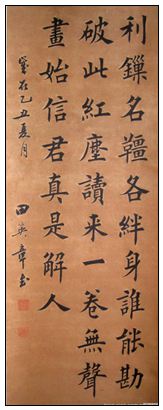 利鏁名韁各絆身誰能勘
破此紅塵讀来一卷無聲
畫始信君真是解人
歲在乙丑夏月 田英章書